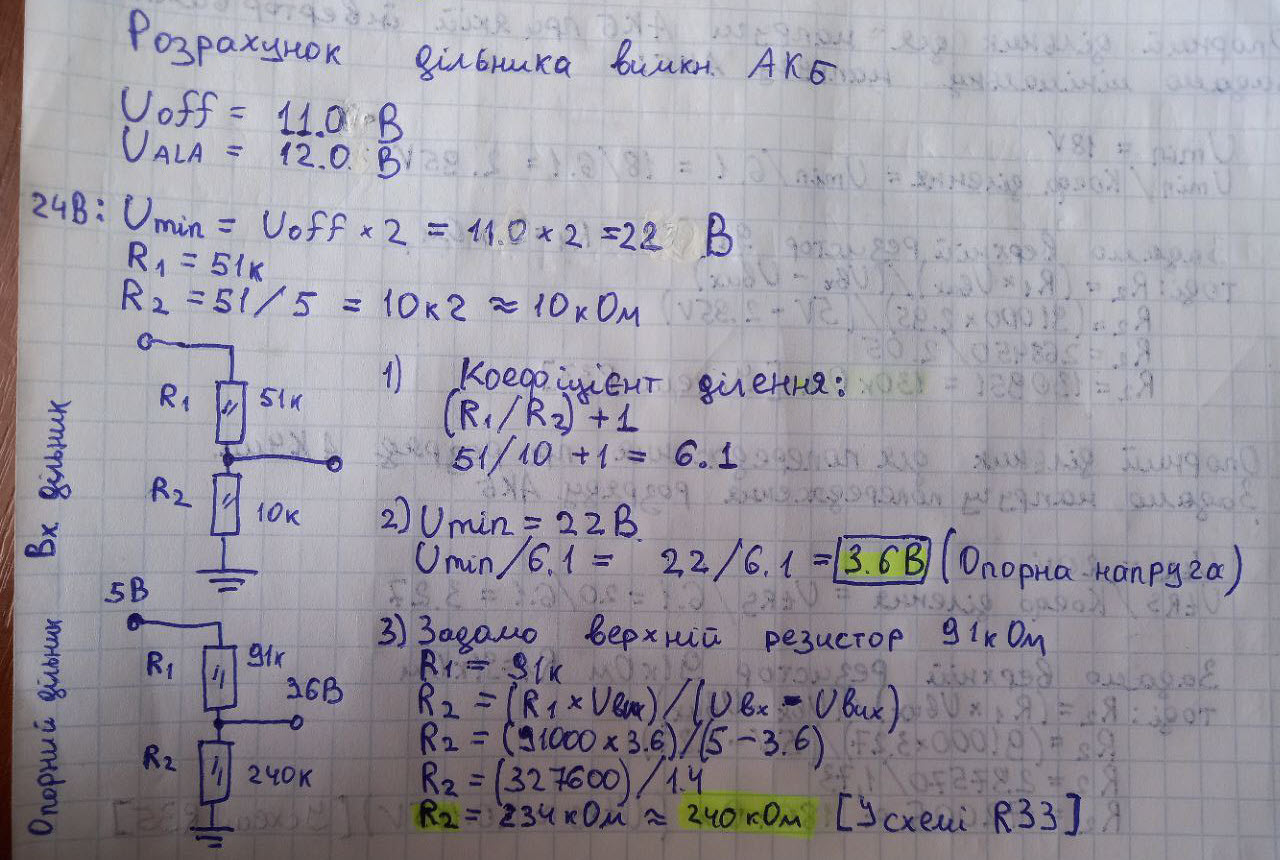 Розрахунок дільника вимкн. АКБ
Uoff = 11.0 В
UALA = 12.0 В
24В: Umin = Uoff × 2 = 11.0 × 2 = 22 В
R1 = 51к
R2 = 51/5 = 10к2 ≈ 10кОм
Вх дільник
R1 51к
R2 10к
1) Коефіцієнт ділення:
(R1/R2) + 1
51/10 + 1 = 6.1
2) Umin = 22В
Umin/6.1 = 22/6.1 = 3.6В (Опорна напруга)
Опорний дільник
5В
R1 91к
36В
R2 240к
3) Задамо верхній резистор 91кОм
R1 = 91к
R2 = (R1 × Uвих) / (Uвх - Uвих)
R2 = (91000 × 3.6) / (5 - 3.6)
R2 = (327600) / 1.4
R2 = 234кОм ≈ 240кОм [У схемі R33]